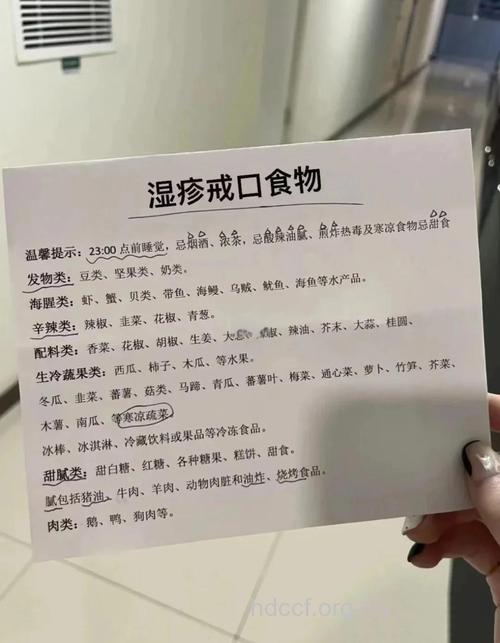 湿疹戒口食物
温馨提示：23:00 点前睡觉，忌烟酒、浓茶，忌酸辣油腻、煎炸热毒及寒凉食物忌甜食
发物类：豆类、坚果类、奶类。
海腥类：虾、蟹、贝类、带鱼、海鳗、乌贼、鱿鱼、海鱼等水产品。
辛辣类：辣椒、韭菜、花椒、青葱。
配料类：香菜、花椒、胡椒、生姜、大 椒、辣油、芥末、大蒜、桂圆、
生冷蔬果类：西瓜、柿子、木瓜、等水果。
冬瓜、韭菜、蕃薯、菇类、马蹄、青瓜、蕃薯叶、梅菜、通心菜、萝卜、竹笋、芥菜、
木薯、南瓜、等寒凉疏菜。
冰棒、冰淇淋、冷藏饮料或果品等冷冻食品。
甜腻类：甜白糖、红糖、各种糖果、糕饼、甜食。
腻包括猪油、牛肉、羊肉、动物肉脏和油炸、烧烤食品。
肉类：鹅、鸭、狗肉等。
hdccf.org